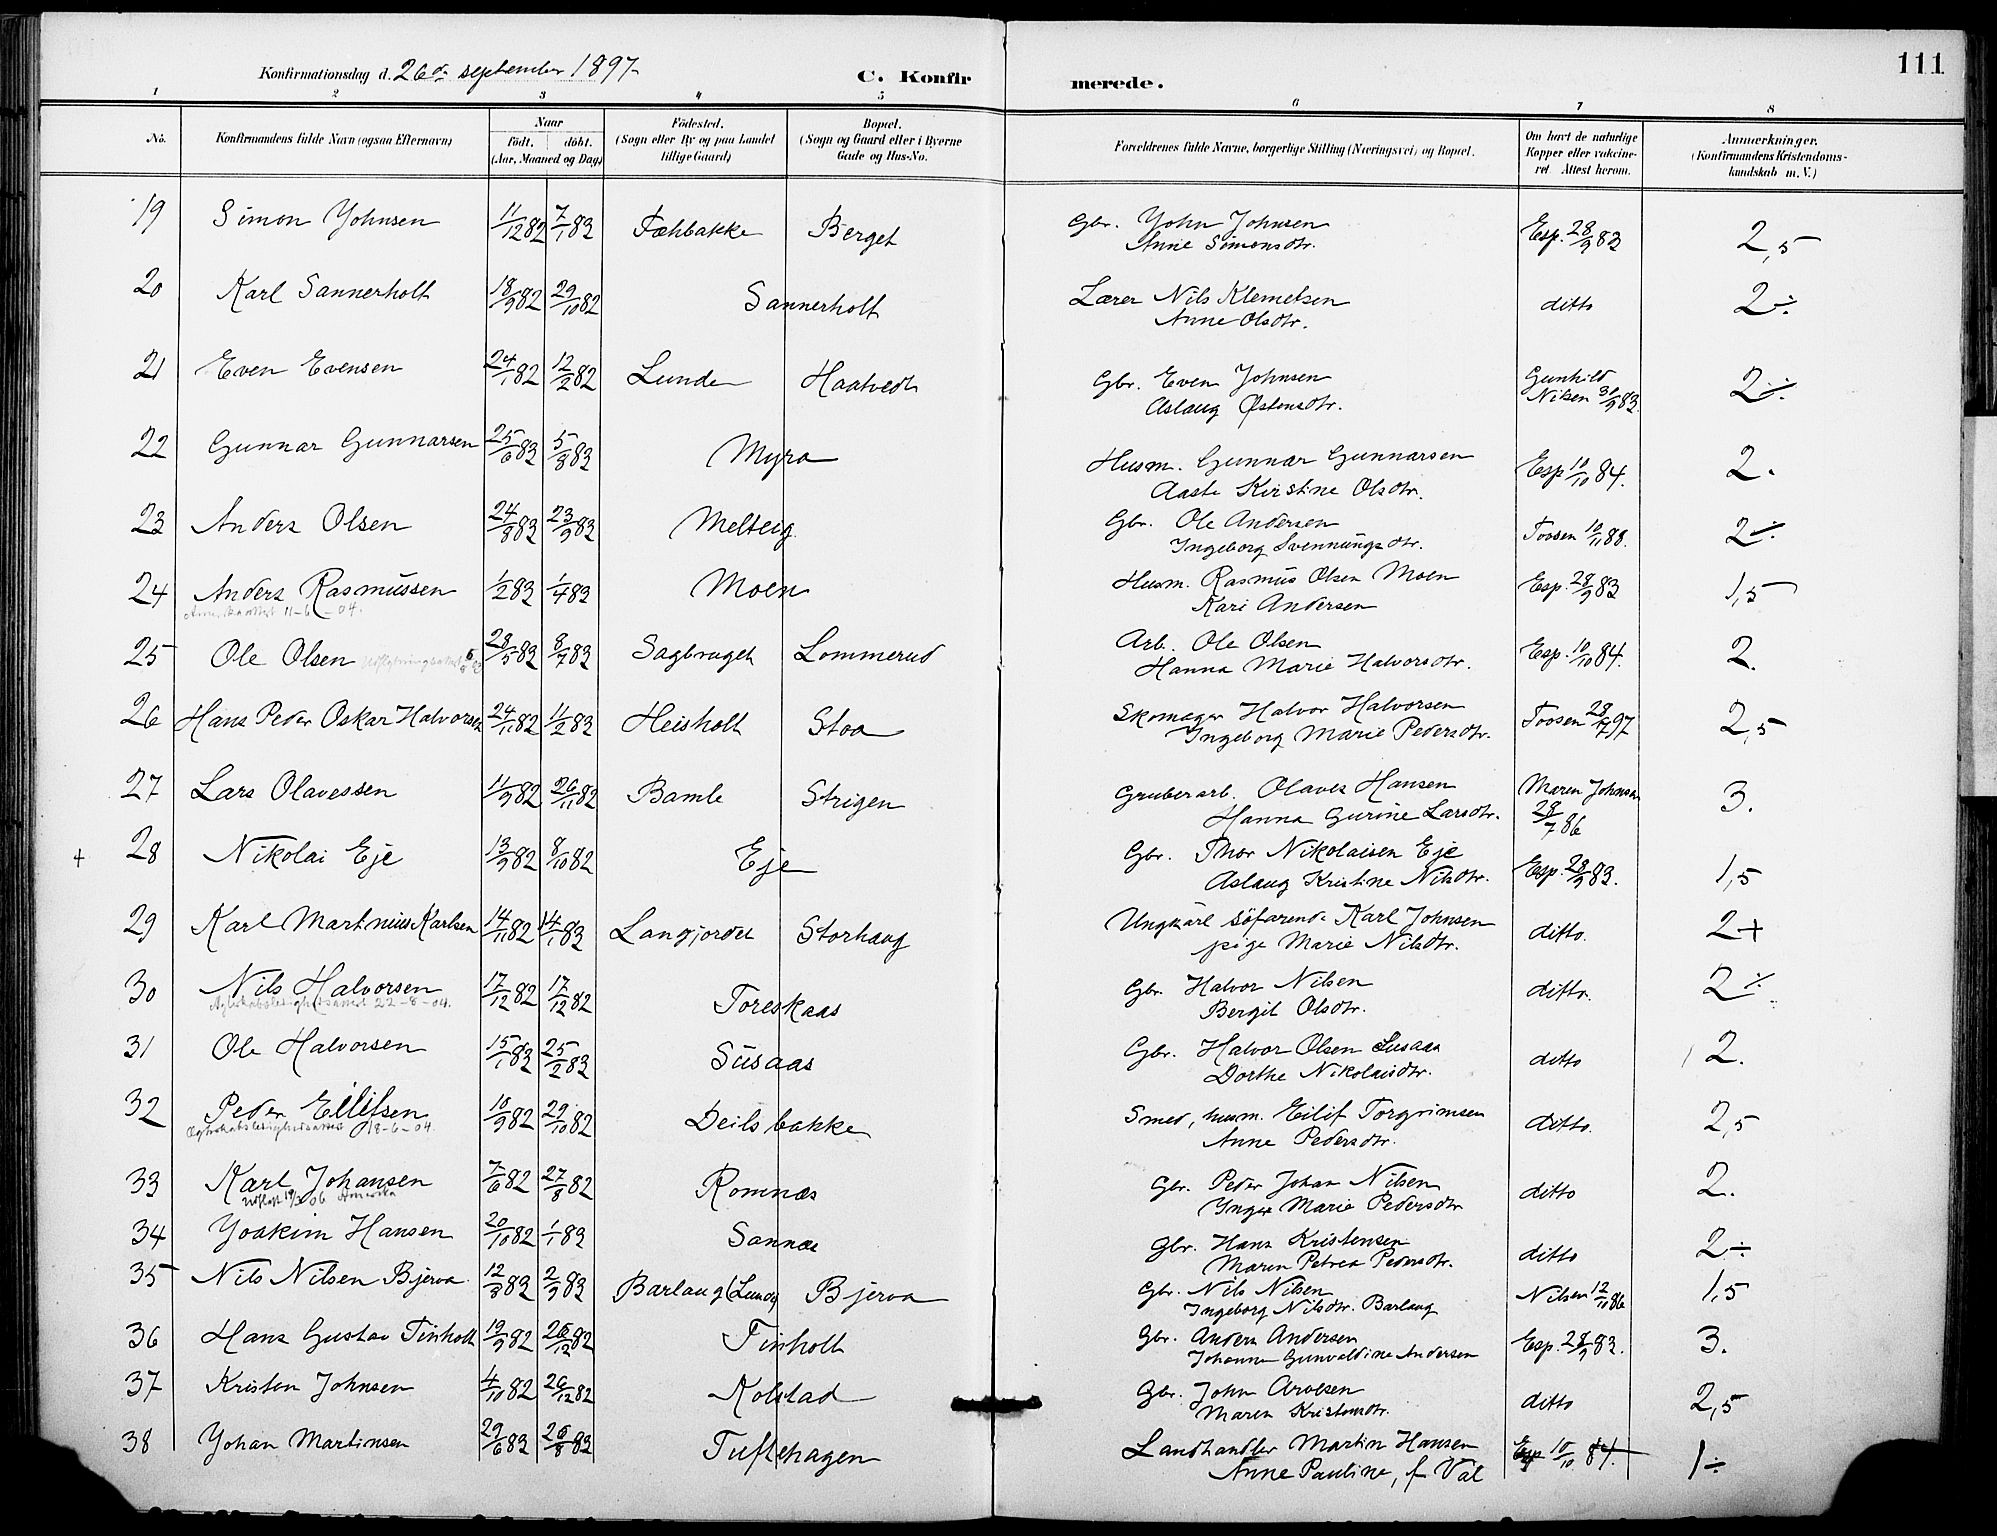 111
Konfirmationsdag d. 26de september 1897.
C. Konfirmerede.
1 2 3 4 5 6 7 8
No. Konfirmandens fulde Navn (ogsaa Efternavn) Naar födt. döbt. (Aar, Maaned og Dag) Födested. (Sogn eller By og paa Landet tillige Gaard) Bopæl. (Sogn og Gaard eller i Byerne Gade og Hus-No. Forældrenes fulde Navne, borgerlige Stilling (Næringsvei) og Bopæl. Om havt de naturlige Kopper eller vaccineret. Attest herom. Anmærkninger. (Konfirmandens Kristendomskundskab m. V.)
19 Simon Johnsen 11/12 82 7/1 83 Fæhbakke Berget Gbr. John Johnsen Esp. 28/9 83 2,5
Anne Simonsdtr.
20 Karl Sannerholt 18/9 82 29/10 82 Sannerholt Lærer Nils Klemetsen ditto 2÷
Anne Olsdtr.
21 Even Evensen 24/1 82 12/2 82 Lunde Haatvedt Gbr. Even Johnsen Gunhild Nilsen 3/9 83. 2÷
Aslaug Østensdtr.
22 Gunnar Gunnarsen 25/6 83 5/8 83 Myra Husm. Gunnar Gunnarsen Esp 10/10 84. 2.
Aaste Kirstine Olsdtr.
23 Anders Olsen 24/8 83 23/9 83 Melteig. Gbr. Ole Andersen Toosen 10/11 88. 2÷
Ingeborg Svennungsdtr.
24 Anders Rasmussen 1/2 83 1/4 83 Moen Husm. Rasmus Olsen Moen Esp. 28/9 83 1,5
11-6-04. Kari Andersen
25 Ole Olsen 28/5 83 8/7 83 Sagbruget Lommerud Arb. Ole Olsen Esp. 10/10 84. 2.
Hanna Marie Halvorsdtr.
26 Hans Peder Oskar Halvorsen 24/11 82 11/2 83 Heisholt Stoa Skomager Halvor Halvorsen Toosen 28/7 97 2,5
Ingeborg Marie Pedersdtr.
27 Lars Olavessen 11/9 82 26/11 82 Bamle Strigen Gruberarb. Olaves Hansen Maren Johnsen 28/7 86 3.
Hanna Gurine Larsdtr.
+ 28 Nikolai Eje 13/9 82 8/10 82 Eje Gbr. Thor Nikolaisen Eje Esp. 28/9 83. 1,5
Aslaug Kristine Nilsdtr.
29 Karl Martinius Karlsen 14/11 82 14/1 83 Langjordet Storhaug Ungkarl söfarende Karl Johnsen ditto. 2+
pige Marie Nilsdtr.
30 Nils Halvorsen 17/12 82 17/12 82 Toreskaas Gbr. Halvor Nilsen ditto. 2÷
22-8-04. Bergit Olsdtr.
31 Ole Halvorsen 15/1 83 25/2 83 Susaas Gbr. Halvor Olsen Susaas ditto 2.
Dorthe Nikolaisdtr.
32 Peder Eilifsen 10/9 82 29/10 82 Deilsbakke Smed, husm. Eilif Torgrimsen ditto. 2,5
Ægteskabsledighedsattest 18-6-04. Anne Pedersdtr.
33 Karl Johansen 7/6 82 27/8 82 Romnæs Gbr. Peder Johan Nilsen ditto 2.
Amerika Inger Marie Pedersdtr
34 Joakim Hansen 20/10 82 1/1 83 Sannæs Gbr. Hans Kristensen ditto 2÷
Maren Petrea Pedersdtr.
35 Nils Nilsen Bjerva. 12/8 83 2/9 83 Barlaug (Lunde) Bjerva Gbr. Nils Nilsen Nilsen 12/10 86 1,5
Ingeborg Nilsdtr. Barlaug
36 Hans Gustav Finholt 19/9 82 26/12 82 Finholt Gbr. Anders Andersen Esp. 28/9 83. 3.
Johanne Gunvaldine Andersen
37 Kristen Johnsen 4/10 82 26/12 82 Kolstad Gbr. John Arvesen ditto 2,5
Maren Kristensdtr.
38 Johan Martinsen 29/6 83 26/8 83 Tuftehagen Landhandler Martin Hansen Esp 10/10 84. 1÷
Anne Pauline, f Val